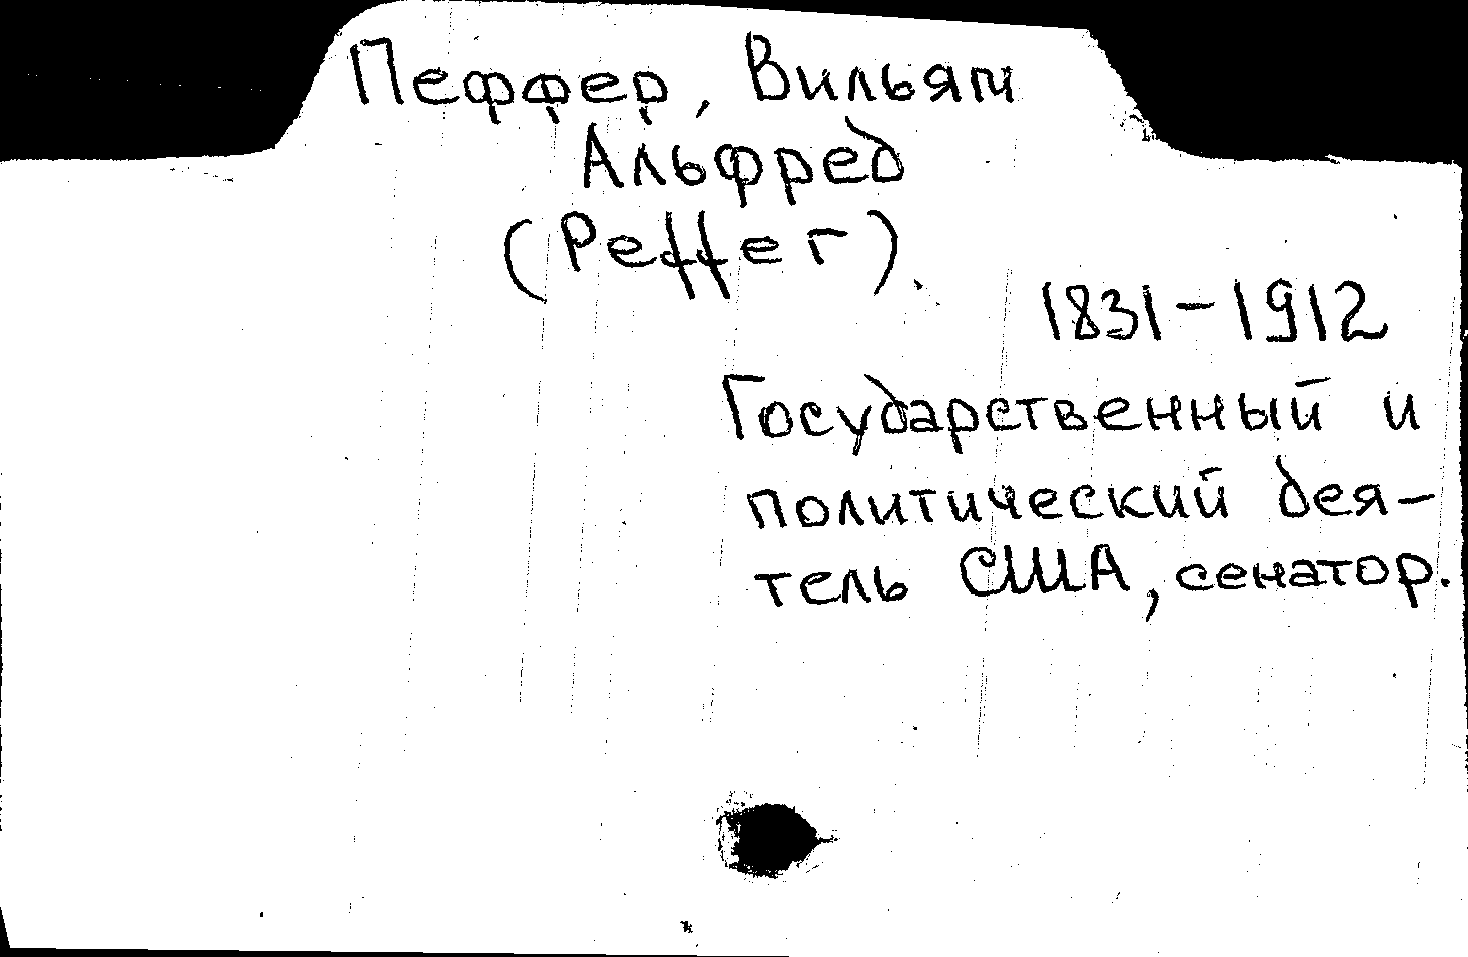 Пеффер, Вильям
Альфред
(Peffer)
1831-1912
Государственный и
политический дея-
тель США, сенатор.